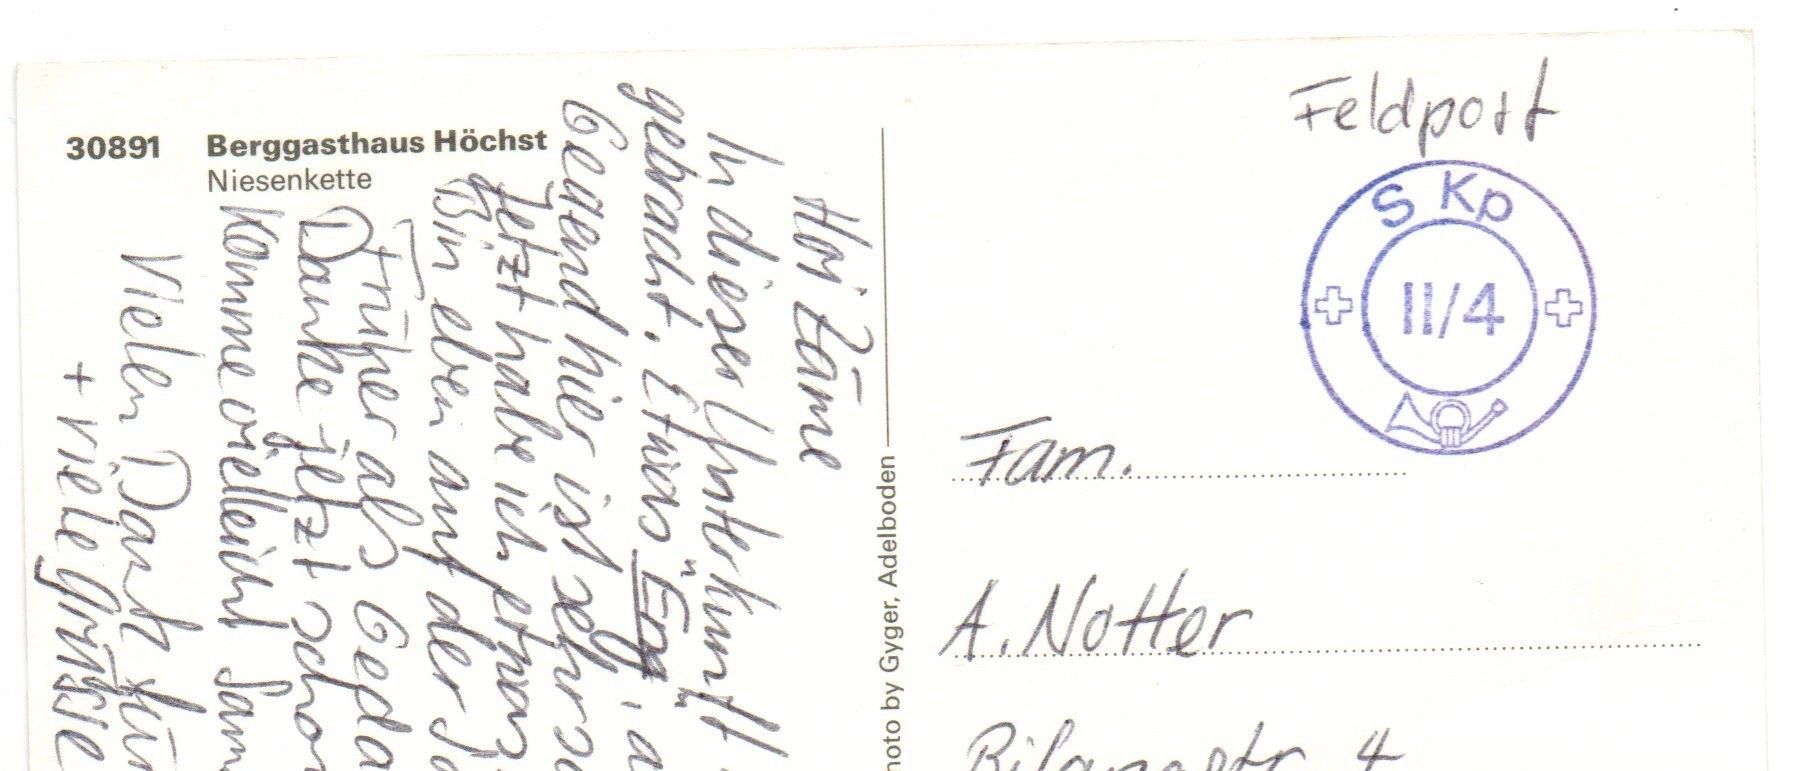 30891 Berggasthaus Höchst
Niesenkette
Hoi Zäme
In dieser Unterkunft
gebracht. Etwas "Eng",
Gegend hier ist sehr
Jetzt habe ich etwas
Bin eben auf der
Früher als
Danke jetzt schon
Komme vielleicht
Vielen Dank für
+ viele Grüsse
Photo by Gyger, Adelboden
Feldpost
S Kp
II/4
Fam.
A. Notter
4